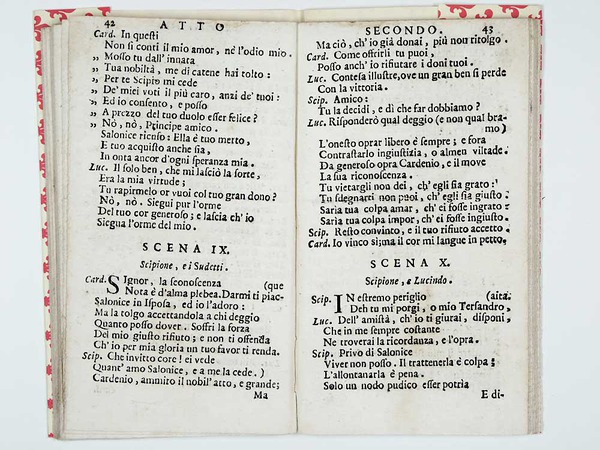 42 ATTO
Card. In questi
Non si conti il mio amor, nè l'odio mio.
„ Mosso tu dall' innata
„ Tua nobiltà, me di catene hai tolto:
„ Per te Scipio mi cede
„ De' miei voti il più caro, anzi de' tuoi:
„ Ed io consento, e posso
„ A prezzo del tuo duolo esser felice?
„ Nò, nò, Principe amico.
Salonice ricuso: Ella è tuo merto,
E tuo acquisto anche sia,
In onta ancor d'ogni speranza mia.
Luc. Il solo ben, che mi lasciò la sorte,
Era la mia virtude;
Tu rapirmelo or vuoi col tuo gran dono?
Nò, nò. Siegui pur l'orme
Del tuo cor generoso; e lascia ch'io
Siegua l'orme del mio.
SCENA IX.
Scipione, e i Sudetti.
Card. SIgnor, la sconoscenza (que
Nota è d'alma plebea. Darmi ti piac-
Salonice in Isposa, ed io l'adoro:
Ma la tolgo accettandola a chi deggio
Quanto posso dover. Soffri la forza
Del mio giusto rifiuto; e non ti offenda
Ch'io per mia gloria un tuo favor ti renda.
Scip. Che invitto core! ei vede
Quant' amo Salonice, e a me la cede. )
Cardenio, ammiro il nobil' atto, e grande;
Ma
SECONDO. 43
Ma ciò, ch'io già donai, più non ritolgo.
Card. Come offrirli tu puoi,
Posso anch'io rifiutare i doni tuoi.
Luc. Contesa illustre, ove un gran ben si perde
Con la vittoria.
Scip. Amico:
Tu la decidi, e dì che far dobbiamo?
Luc. Risponderò qual deggio (e non qual bra-
mo)
L'onesto oprar libero è sempre; e fora
Contrastarlo ingiustizia, o almen viltade.
Da generoso opra Cardenio, e il move
La sua riconoscenza.
Tu vietargli non dei, ch'egli sia grato:
Tu sdegnarti non puoi, ch'egli sia giusto.
Saria tua colpa amar, ch'ei fosse ingrato
Saria tua colpa impor, ch'ei fosse ingiusto.
Scip. Resto convinto, e il tuo rifiuto accetto.
Card. Io vinco sì; ma il cor mi langue in petto.
SCENA X.
Scipione, e Lucindo.
Scip. IN estremo periglio (aita.
Deh tu mi porgi, o mio Tersandro,
Luc. Dell' amistà, ch'io ti giurai, disponi,
Che in me sempre costante
Ne troverai la ricordanza, e l'opra.
Scip. Privo di Salonice
Viver non posso. Il trattenerla è colpa;
L'allontanarla è pena.
Solo un nodo pudico esser potria
E di-